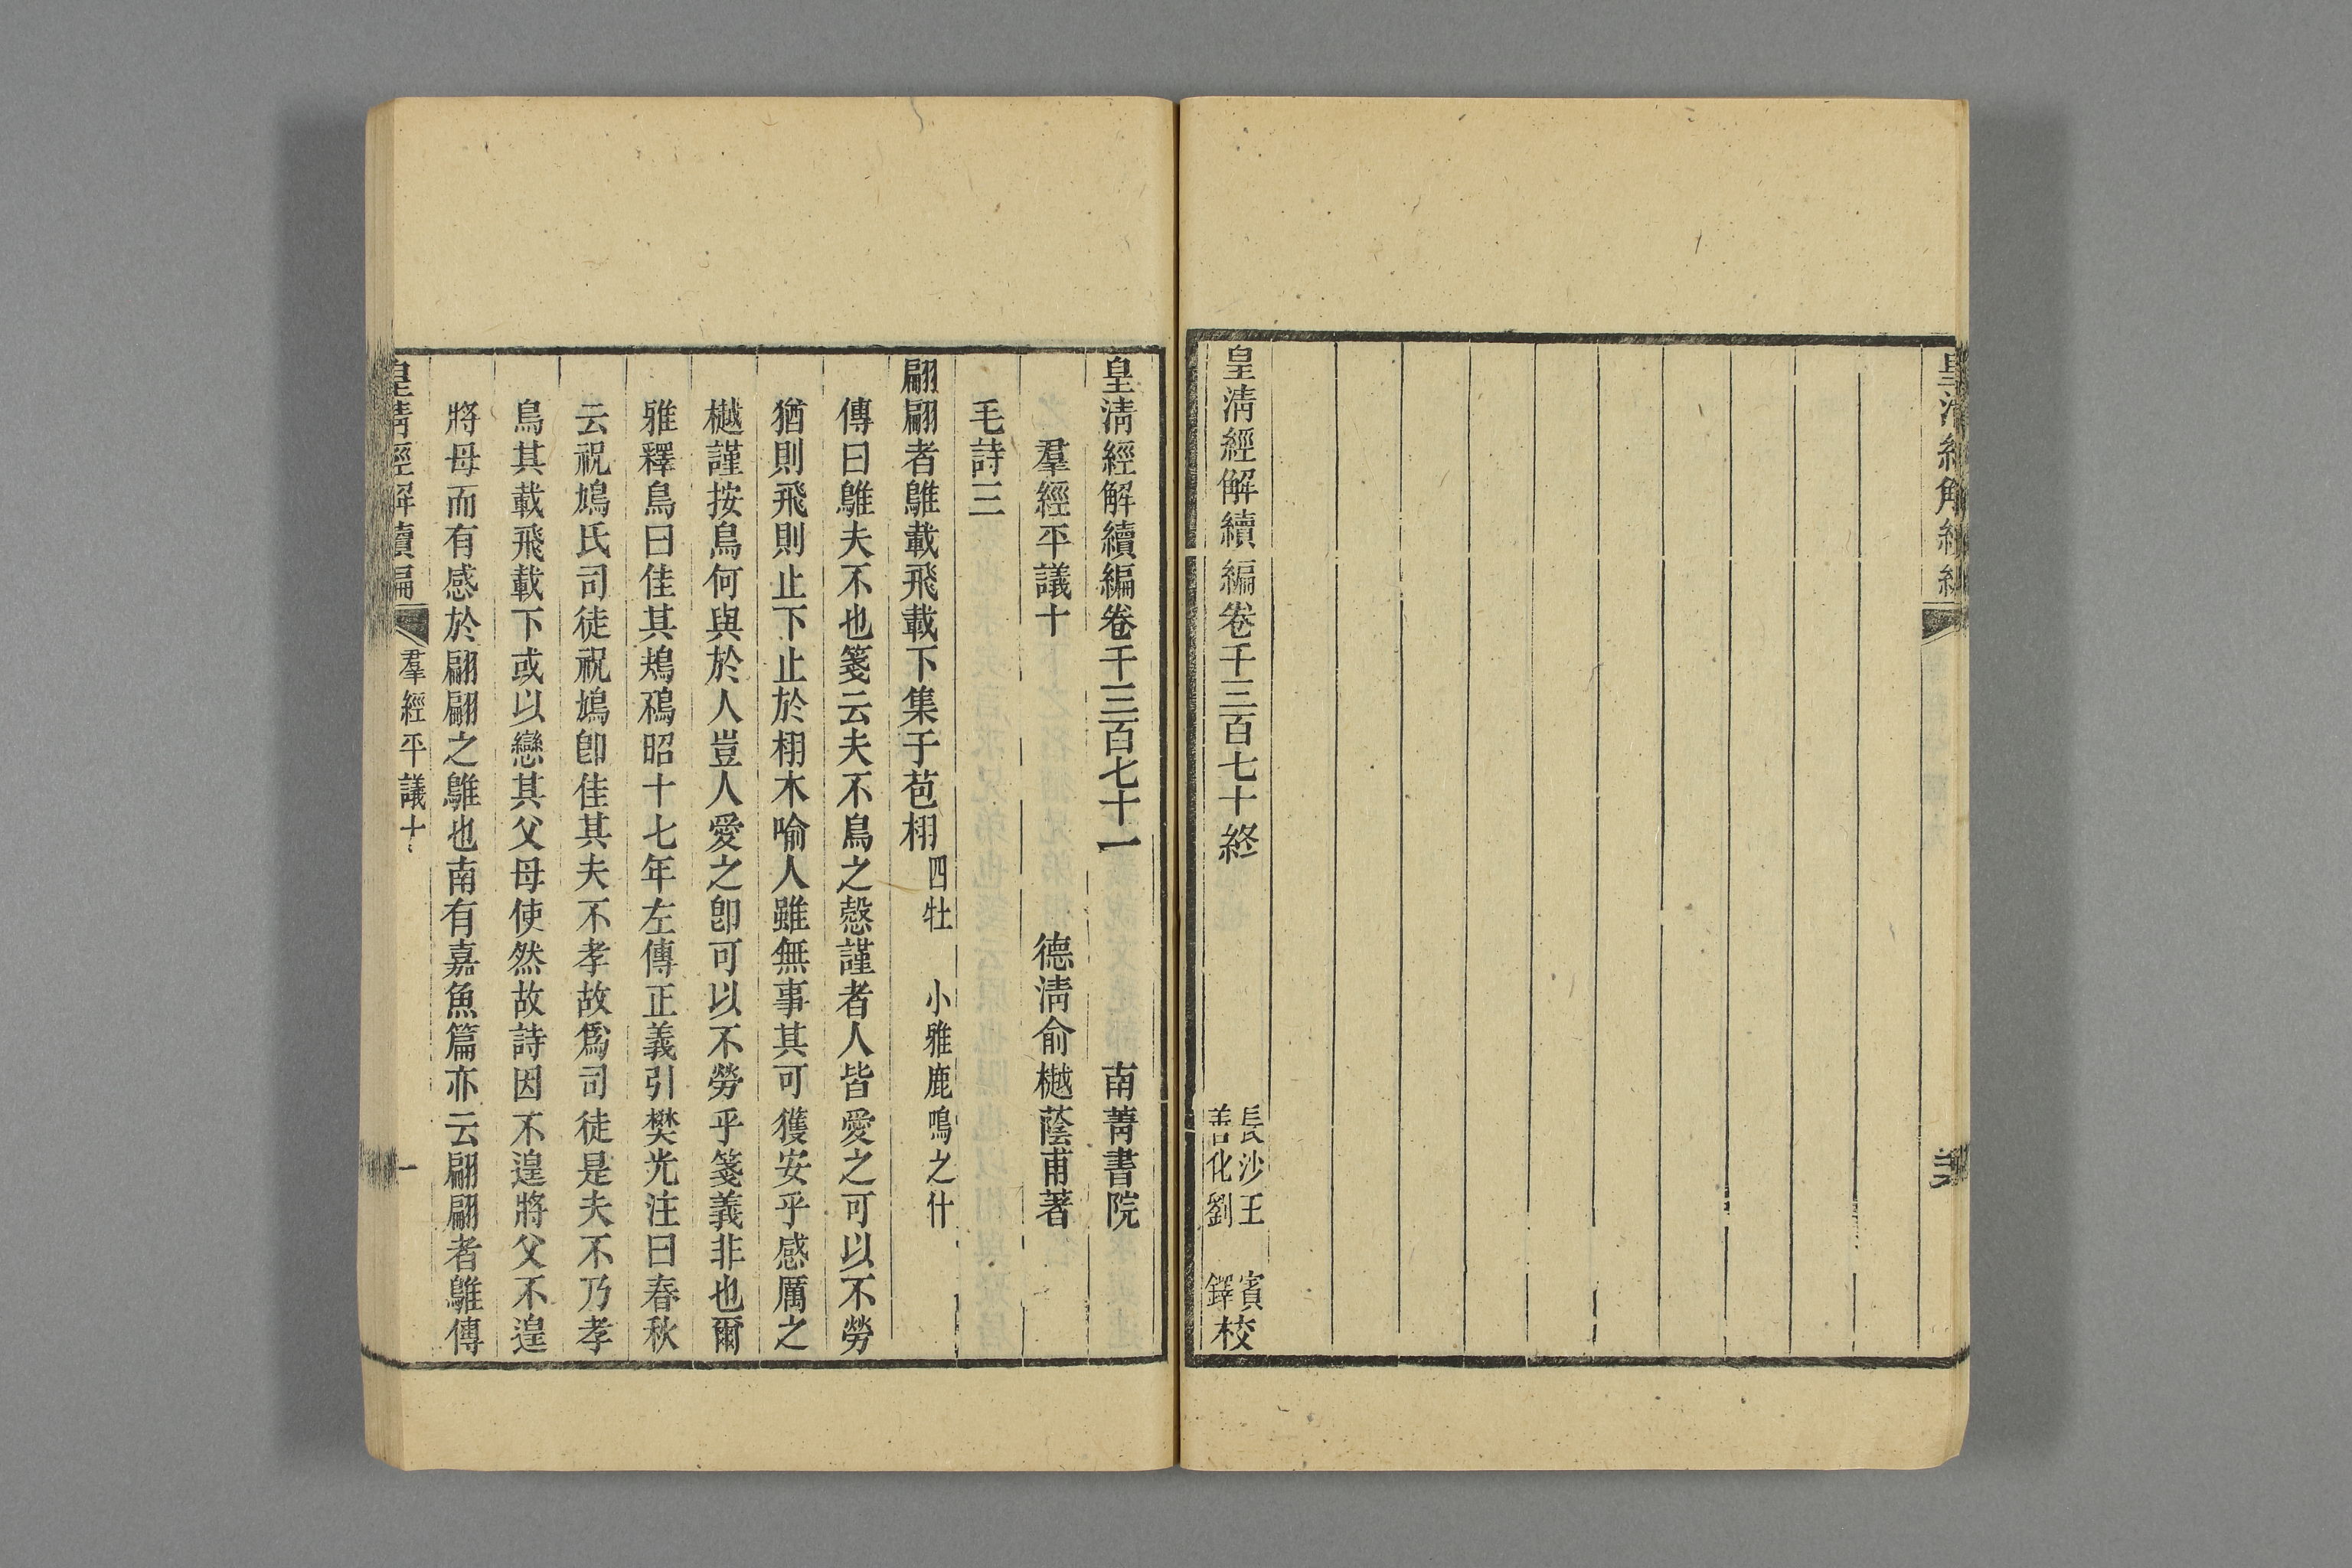 皇清經解續編卷千三百七十終
長沙王 賓
善化劉 鐸
校
皇清經解續編卷千三百七十一 南菁書院
羣經平議十 德清俞樾蔭甫著
毛詩三
翩翩者鵻載飛載下集于苞栩四牡 小雅鹿鳴之什
傳曰鵻夫不也箋云夫不鳥之慤謹者人皆愛之可以不勞
猶則飛則止下止於栩木喻人雖無事其可獲安乎感厲之
樾謹按鳥何與於人豈人愛之卽可以不勞乎箋義非也爾
雅釋鳥曰隹其鳺鴀昭十七年左傳正義引樊光注曰春秋
云祝鳩氏司徒祝鳩卽隹其夫不孝故爲司徒是夫不乃孝
鳥其載飛載下或以戀其父母使然故詩因不遑將父不遑
將母而有感於翩翩之鵻也南有嘉魚篇亦云翩翩者鵻傳
皇清經解續編 羣經平議十 一